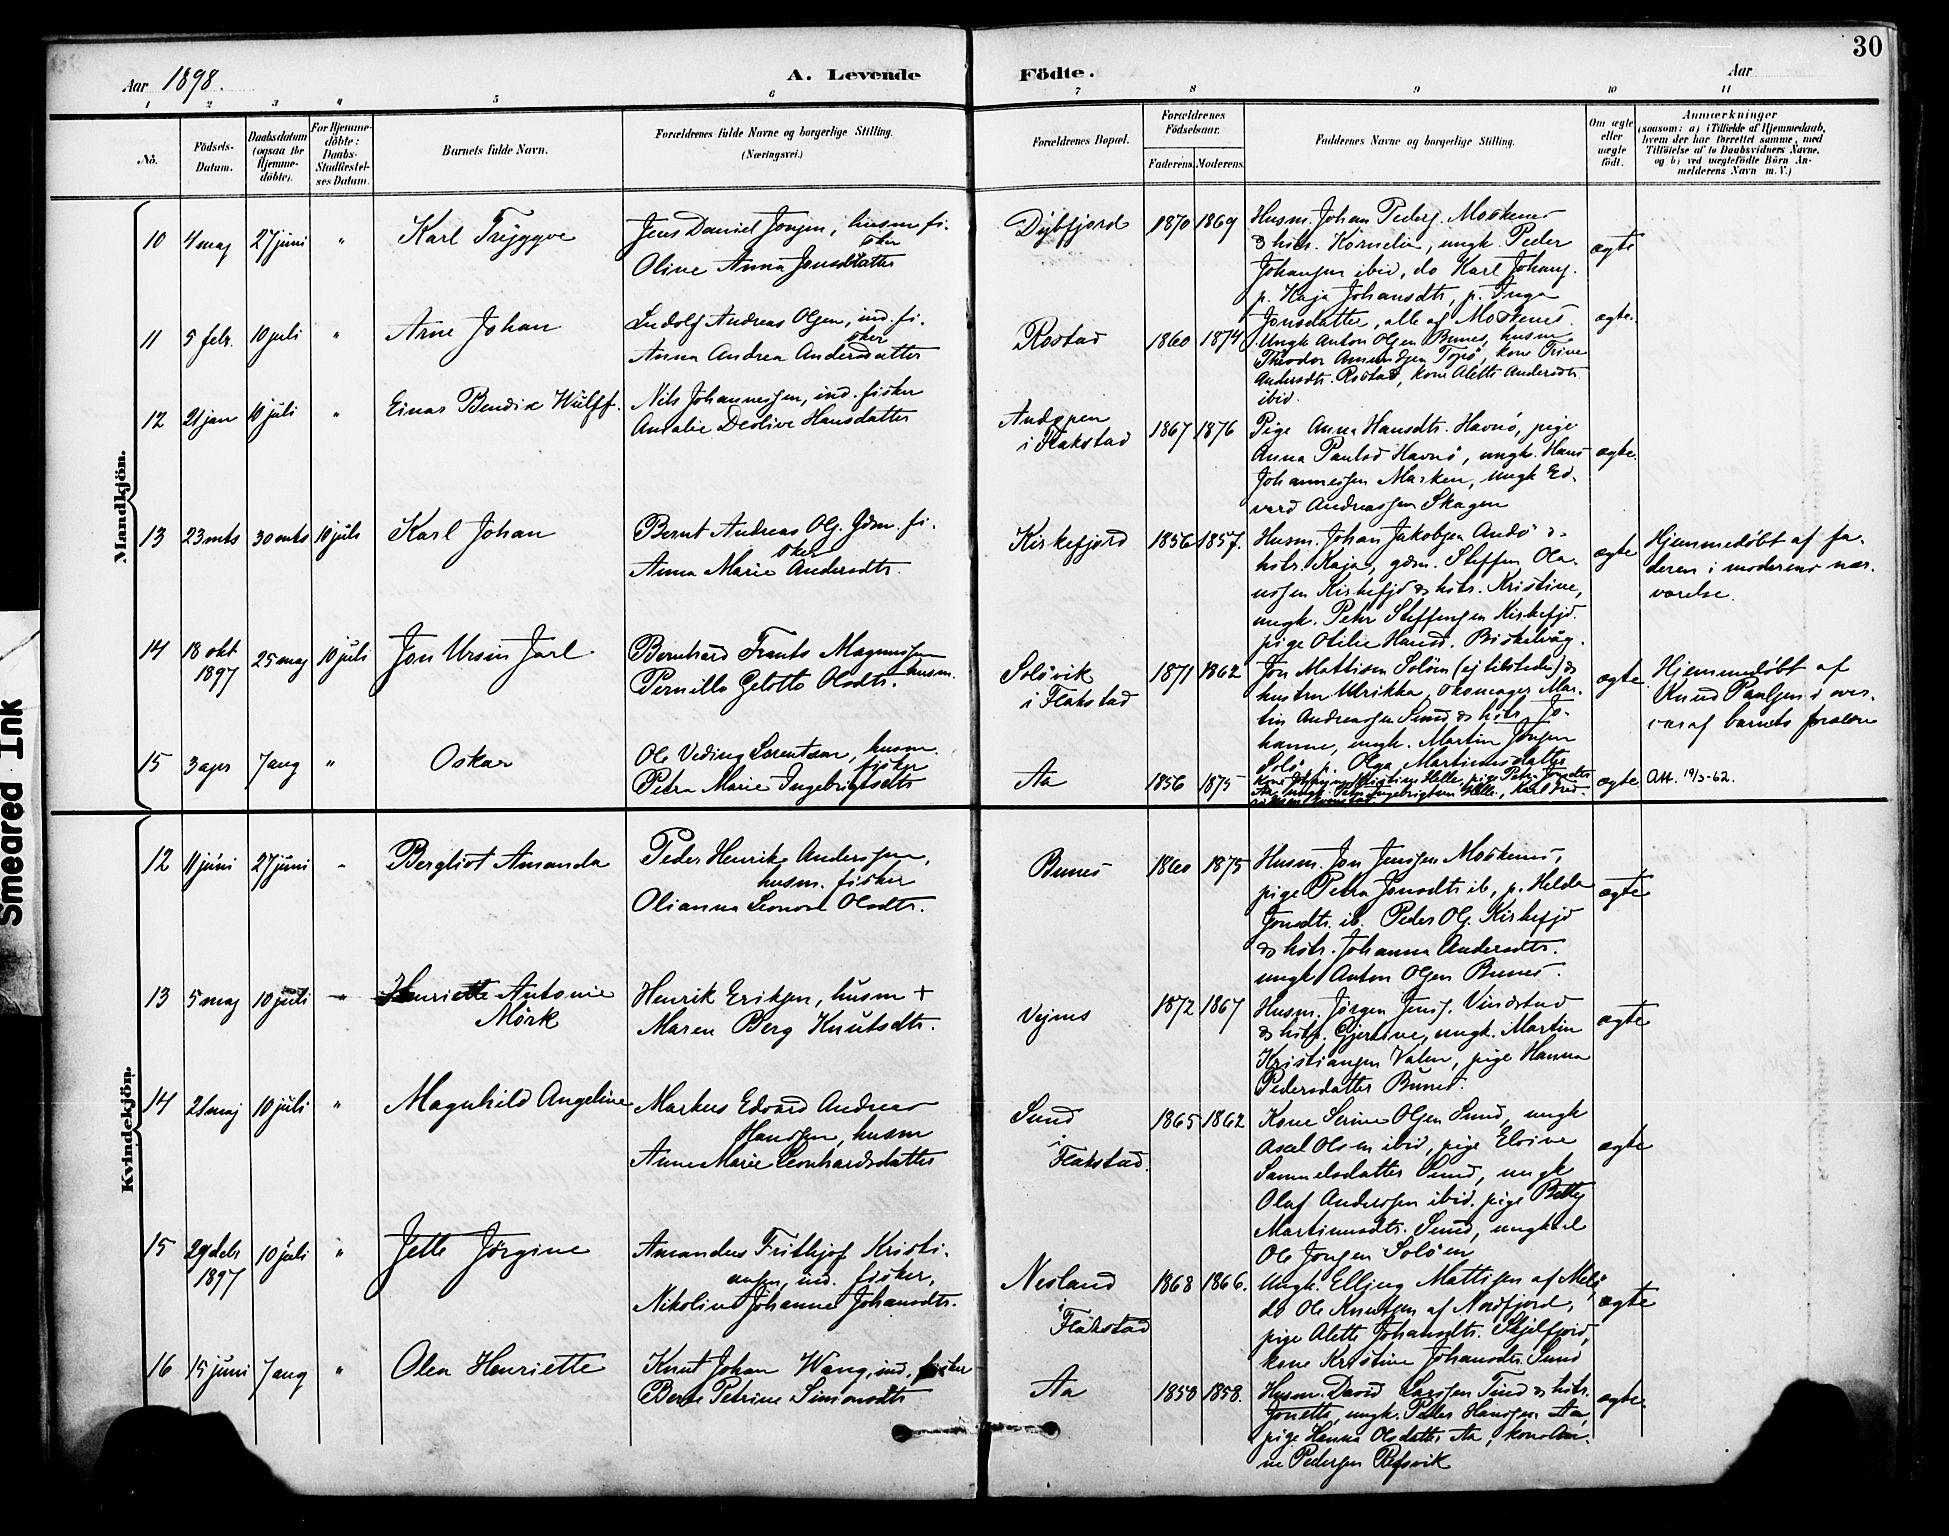 30
Aar 1898.
A. Levende Födte.
Aar
1 2 3 4 5 6 7 8 9 10 11
No.
Födsels-Datum.
Daabsdatum (ogsaa for Hjemme-döbte).
For Hjemme-döbte: Daabs-Stadfæstel-ses Datum.
Barnets fulde Navn.
Forældrenes fulde Navne og borgerlige Stilling. (Næringsvei.)
Forældrenes Bopæl.
Forældrenes Födselsaar.
Faderens. Moderens.
Faddernes Navne og borgerlige Stilling.
Om ægte eller uægte födt.
Anmærkninger
(saasom: a) i Tilfælde af Hjemmedaab, hvem der har forrettet samme, med Tilföielse af to Daabsvidners Navne, og b) ved uægtefödte Börn Anmelderens Navn m. V.)
Mandkjön.
10 4 maj 27 juni " Karl Tryggve
Jens Daniel Jonsen, husm. fi-
sker
Oline Anna Jonsdatter
Dybfjord 1870 1869
Husm. Johan Peders. Moskenes
& hstr. Kornelia, ungk. Peder
Johansen ibid, do Karl Johans.
p. Kaja Johansdtr, p. Inga
Jonsdatter, alle af Moskenes.
ægte
11 5 febr. 10 juli " Arne Johan
Ludolf Andreas Olsen, ind. fi-
sker
Anna Andrea Andersdatter
Rostad 1860 1874
Ungk Anton Olsen Bunes, husm
Theodor Amundsen Topö, kone Trine
Andersdtr. Rostad, kone Alette Andersdtr
ibid
ægte.
12 21 jan 10 juli " Einar Bendix Wulff.
Nils Johannessen, ind. fisker
Amalie Deolive Hansdatter
Andopen
i Flakstad 1867 1876
Pige Anna Hansdtr. Havnö, pige
Anna Paulsd Havnö, ungk. Hans
Johannessen Marken, ungk Ed-
vard Andreassen Skagen
ægte.
13 23 mts 30 mts 10 juli Karl Johan
Bernt Andreas Ols. Gdm. fi-
sker
Anna Marie Andersdtr.
Kirkefjord 1856 1857.
Husm. Johan Jakobsen Andö &
hstr. Kaja, gdm. Steffen Ola-
ussen Kirkefjd & hstr. Kristine,
ungk. Peter Steffensen Kirkefjd.
pige Otilie Hansd. Birkelvåg.
ægte
Hjemmedøbt af fa-
deren i moderens nær-
værelse.
14 18 okt
1897 25 maj 10 juli Jon Ursin Jarl.
Bernhard Frants Magnussen
husm.
Pernilla Gelotte Olsdtr.
Solövik
i Flakstad 1871 1862
Jon Mattisen Solöen (ej tilstede) &
hustru Ulrikka, skomager Mar-
tin Andreassen Sund & hstr. Jo-
hanne, ungk. Martin Jonsen
Solö, p. Olga Martinusdatter
ægte
Hjemmedøbt af
Knud Paulsen i over-
vær af barnets forældre
15 3 apr 7 aug " Oskar
Ole Veding Lorentsen, husm.
fisker
Petra Marie Ingebrigtsdtr
Aa 1856 1875
ægte Att. 19/3-62.
Kvindekjön.
12 11 juni 27 juni - Bergliot Amanda
Peder Henrik Anderssen,
husm. fisker
Olianna Leonore Olsdtr.
Bunes 1860 1875
Husm. Jon Jenssen Moskenes,
pige Petra Jonsdtr ib, p. Helda
Jonsdtr. ib. Peder Ols. Kirkefjd
& hstr. Johanna Andersdtr.
ungk Anton Olsen Bunes.
ægte
13 5 maj 10 juli - Henriette Antonie
Mörk
Henrik Eriksen, husm +
Maren Berg Knutsdtr.
Vejnes 1872 1867
Husm. Jörgen Jens. Vindstad
& hstr. Gjertine, ungk. Martin
Kristiansen Valen, pige Hanna
Pedersdatter Bunes.
ægte
14 21 maj 10 juli " Magnhild Angeline
Markus Edvard Andreas
Hanssen, husm
Anne Marie Leonhardsdatter
Sund
i
Flakstad. 1865 1862
Kone Serine Olsen Sund, ungk
Axel Olsen ibid, pige Elvine
Samuelsdatter Sund, ungk
Olaf Anderssen ibid. pige Betty
Martinusdtr. Sund, ungkarl
Ole Jonsen Solöen
ægte
15 29 debr
1897 10 juli " Jette Jörgine
Amandus Frithjof Kristi-
ansen, ind. fisker,
Nikoline Johanne Johansdtr.
Nesland
i
Flakstad 1868 1866.
Ungk. Elling Mattisen af Melö,
do Ole Knutsen af Nordfjord,
pige Alette Johansdtr. Skjelfjord,
kone Kristine Johansdtr. Sund
ægte
16 15 juni 7 aug " Olea Henriette
Knut Johan Wang, ind. fisker
Berte Petrine Simonsdtr
Aa 1858 1858.
Husm. David Larssen Tind & hstr.
Jonetta, ungk. Peder Hanssen Aa,
pige Hanna Olsdatter Aa, kone An-
ne Pedersen Refsvik
ægte.
Smeared Ink